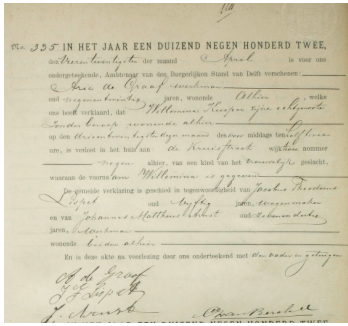 No. 335 IN HET JAAR EEN DUIZEND NEGEN HONDERD TWEE,
den der maand April is voor ons
ondergeteekende, Ambtenaar van den Burgerlijken Stand van Delft verschenen:
Arie de Graaf werkman
oud negenentwintig jaren, wonende Alhier, welke
ons heeft verklaard, dat Willemina Kuiper zijne echtgenoote
zonder beroep wonende alhier
op den dezer des middags ten half twee
ure, is verlost in het huis aan de Kruisstraat wijk nummer
negen alhier, van een kind van het vrouwelijk geslacht,
waaraan de voornaam Willemina is gegeven
De gemelde verklaring is geschied in tegenwoordigheid van Jacobus Theodorus
Lispet oud vijftig jaren, wagenmaker
en van Johannes Mattheus oud
jaren, werkman
wonende beiden alhier
En is deze akte na voorlezing door ons onderteekend met den vader en getuigen
A de Graaf
Lispet